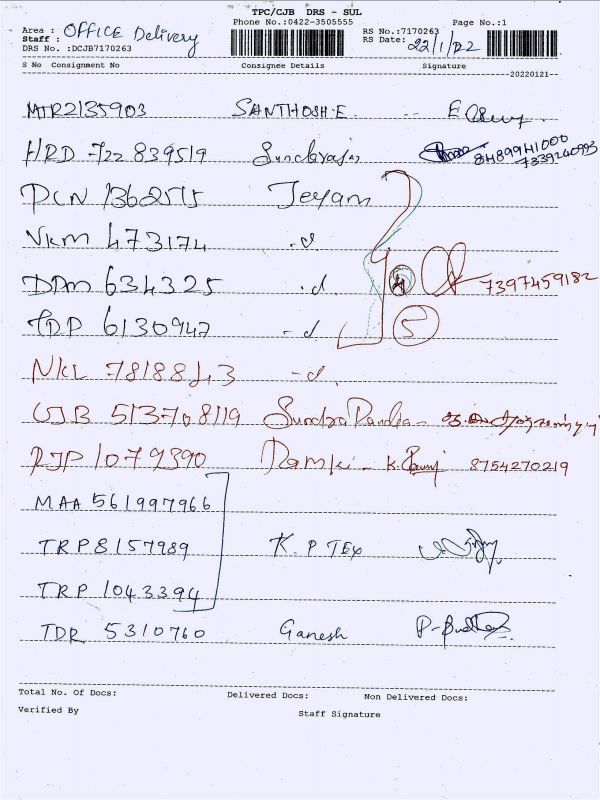 TPC/CJB DRS - SUL
Phone No.:0422-3505555 Page No.:1
Area : OFFICE Delivery
Staff :
RS No.:7170263
DRS No. :DCJB7170263
RS Date: 22/1/22
S No Consignment No Consignee Details Signature
20220121
MTR2135903 SANTHOSH.E
HRD 722 839519 8489941000
PCN 1362575 Jeyam
NKM 473174 -d
DDM 634325 -d 4 7397459182
TDP 6130947 -d 5
NKL -d
513708119
RJP 1079390 Ramki - 8754270219
MAA 561997966
TRP 8157989 K. P TEX
TRP 1043394
TDR 5310760 Ganesh
Total No. Of Docs: Delivered Docs: Non Delivered Docs:
Verified By Staff Signature